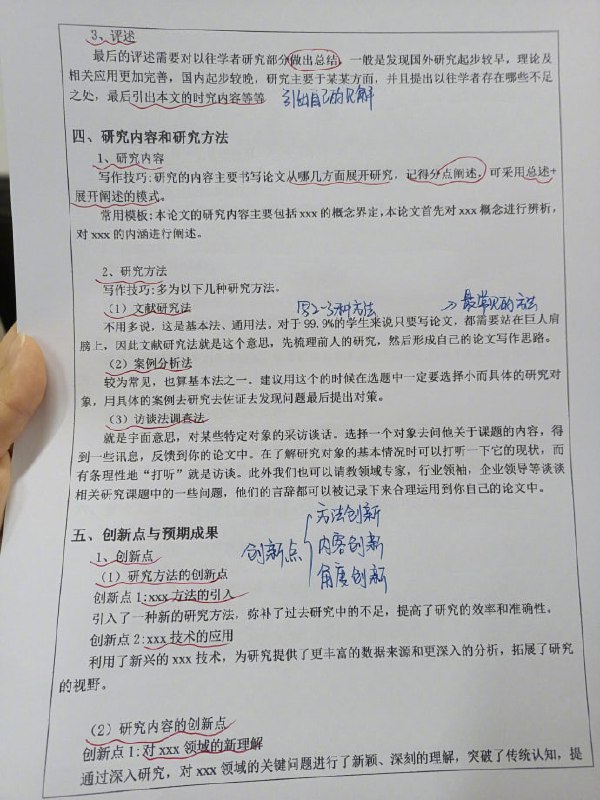 3、评述
最后的评述需要对以往学者研究部分做出总结，一般是发现国外研究起步较早，理论及
相关应用更加完善，国内起步较晚，研究主要于某某方面，并且提出以往学者存在哪些不足
之处，最后引出本文的时究内容等等
引出自己的见解
四、研究内容和研究方法
1、研究内容
写作技巧：研究的内容主要书写论文从哪几方面展开研究，记得分点阐述。可采用总述+
展开阐述的模式。
常用模板：本论文的研究内容主要包括 xxx 的概念界定，本论文首先对 xxx 概念进行辨析，
对 xxx 的内涵进行阐述。
2、研究方法
写作技巧：多为以下几种研究方法。
（1）文献研究法
写2-3种方法
→最常见的方法
不用多说，这是基本法、通用法。对于 99.9%的学生来说只要写论文，都需要站在巨人肩
膀上，因此文献研究法就是这个意思，先梳理前人的研究，然后形成自己的论文写作思路。
（2）案例分析法
较为常见，也算基本法之一．建议用这个的时候在选题中一定要选择小而具体的研究对
象，用具体的案例去研究去佐证去发现问题最后提出对策。
（3）访谈法调查法
就是字面意思，对某些特定对象的采访谈话。选择一个对象去问他关于课题的内容，得
到一些讯息，反馈到你的论文中。在了解研究对象的基本情况时可以打听一下它的现状，而
有条理性地“打听”就是访谈。此外我们也可以请教领域专家，行业领袖，企业领导等谈谈
相关研究课题中的一些问题，他们的言辞都可以被记录下来合理运用到你自己的论文中。
五、创新点与预期成果
创新点
方法创新
内容创新
角度创新
1、创新点
（1）研究方法的创新点
创新点 1：xxx 方法的引入
引入了一种新的研究方法，弥补了过去研究中的不足，提高了研究的效率和准确性。
创新点 2：xxx 技术的应用
利用了新兴的 xxx 技术，为研究提供了更丰富的数据来源和更深入的分析，拓展了研究
的视野。
（2）研究内容的创新点
创新点 1：对 xxx 领域的新理解
通过深入研究，对 xxx 领域的关键问题进行了新颖、深刻的理解，突破了传统认知，提